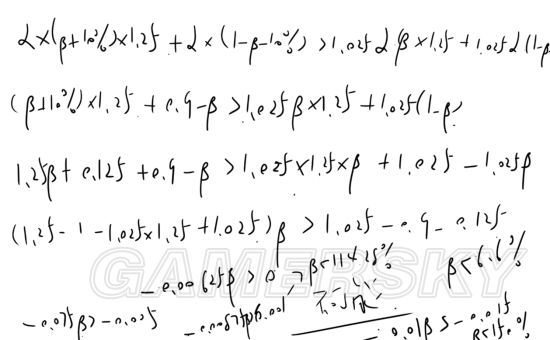 α×(β+10%)×1.25+α×(1-β-10%)>1.025αβ×1.25+1.025α(1-β
(β+10%)×1.25+0.9-β>1.025β×1.25+1.025(1-β)
1.25β+0.125+0.9-β>1.025×1.25×β+1.025-1.025β
(1.25-1-1.025×1.25+1.025)β>1.025-0.9-0.125
-0.00625β>0
β<114.25%
β<6.6%
GAMERSKY
-0.075β>-0.005